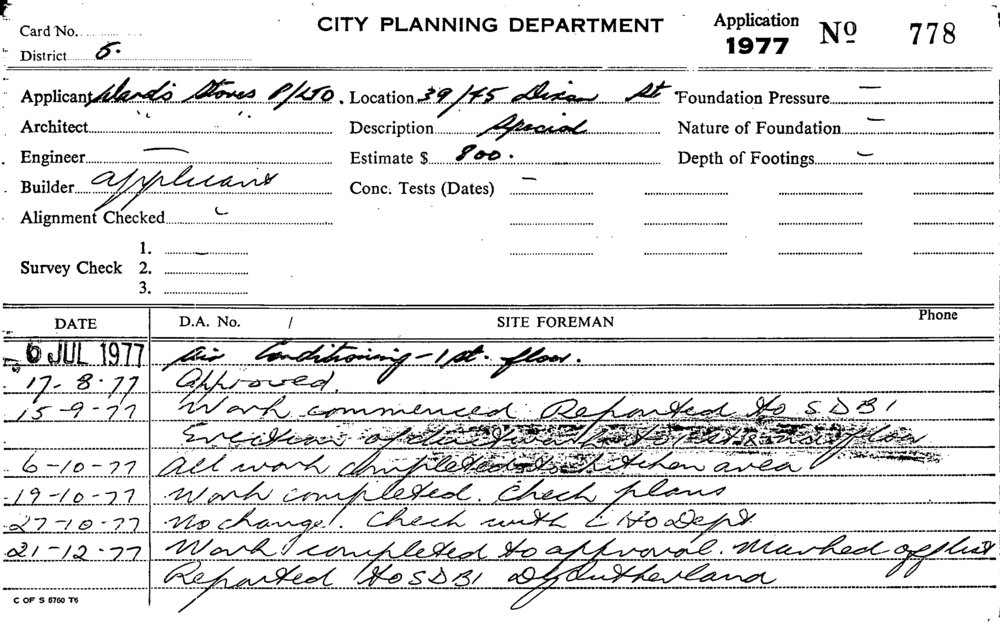 CITY PLANNING DEPARTMENT
Application
1977 No 778
Card No.
District 5.
Applicant Stores P/LTD. Location 39/45 Dixon St Foundation Pressure —
Architect " " Description Special Nature of Foundation —
Engineer — Estimate $ 800. Depth of Footings —
Builder applicant Conc. Tests (Dates) —
Alignment Checked —
1. —
Survey Check 2.
3.
DATE D.A. No. / SITE FOREMAN Phone
6 JUL 1977 Air Conditioning - 1st. floor.
17-8-77 Approved.
15-9-77 Work commenced Reported to SDBI
Erection of ductwork to floor
6-10-77 All work completed to kitchen area
19-10-77 Work completed. Check plans
27-10-77 No change. Check with C Ho Dept
21-12-77 Work completed to approval. Marked off list
Reported to SDBI Sutherland
C OF S 5760 T6